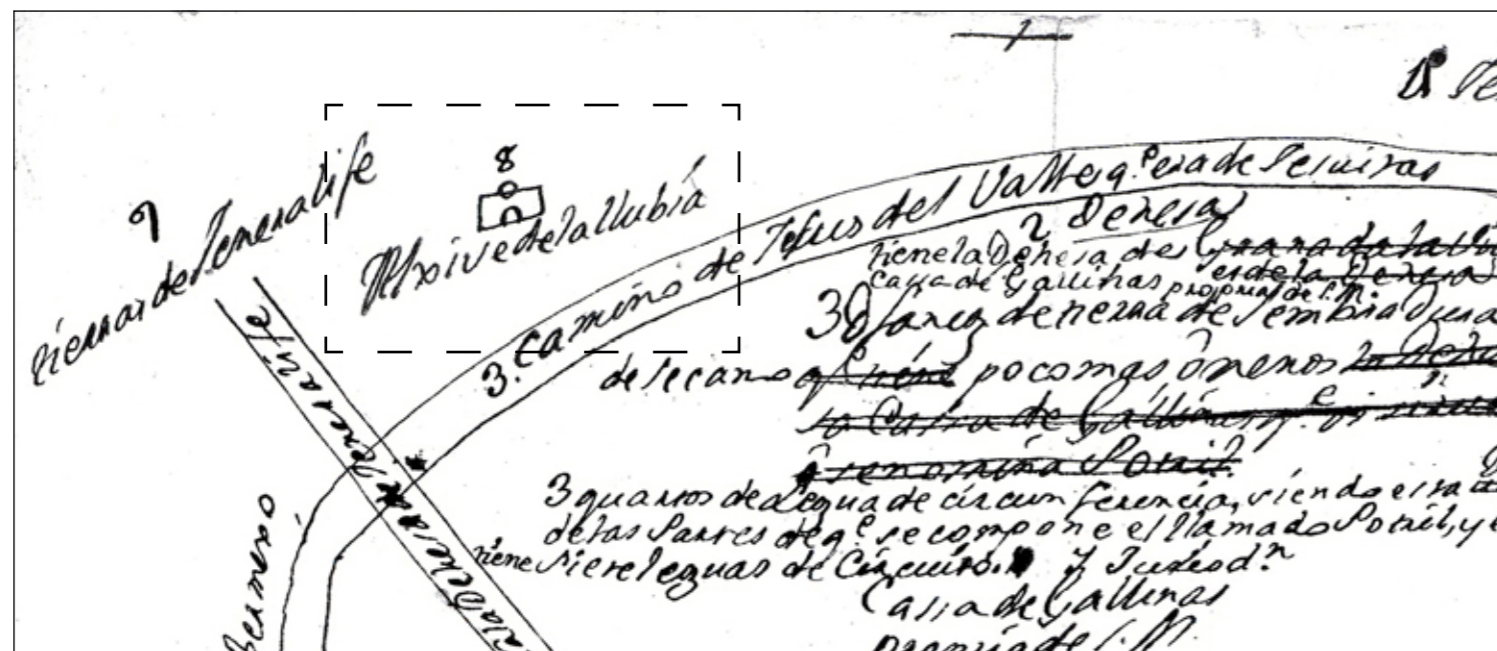 1
8
9
tierras de Jeneralife
Alxive de la llubia
3. Camino de Jesus del Valle q.e era de Jesuitas
2 Dehesa
tiene la Dehesa de
es de la Dehesa
Cassa de Gallinas propria de S.M.
30 faneg.s de tierra de Sembradura
de secano q.e tiene poco mas ô menos
Cassa de Gallinas q.e
se nomina
3 quartos de Legua de circumferencia, siendo esta
de las Partes de q.e se compone el llamado Sotiil, y
tiene Siete leguas de Circuito. y Jurisd.n
Cassa de Gallinas
propria de S.M.
Bermexo
a la Dehesa de Jeneralife